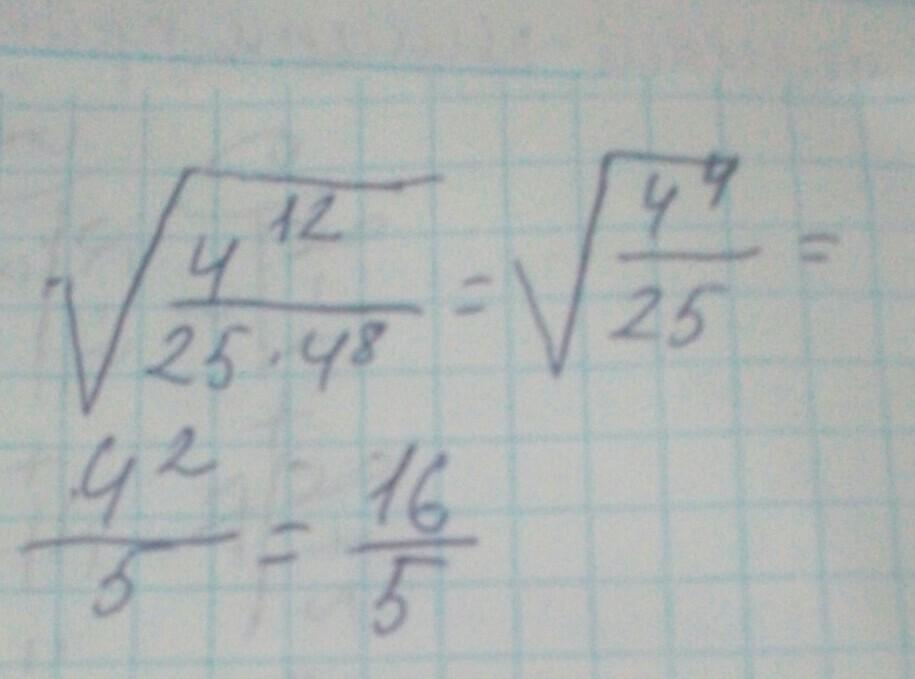 √(4^12 / (25 · 4^8)) = √(4^4 / 25) =
4^2 / 5 = 16 / 5